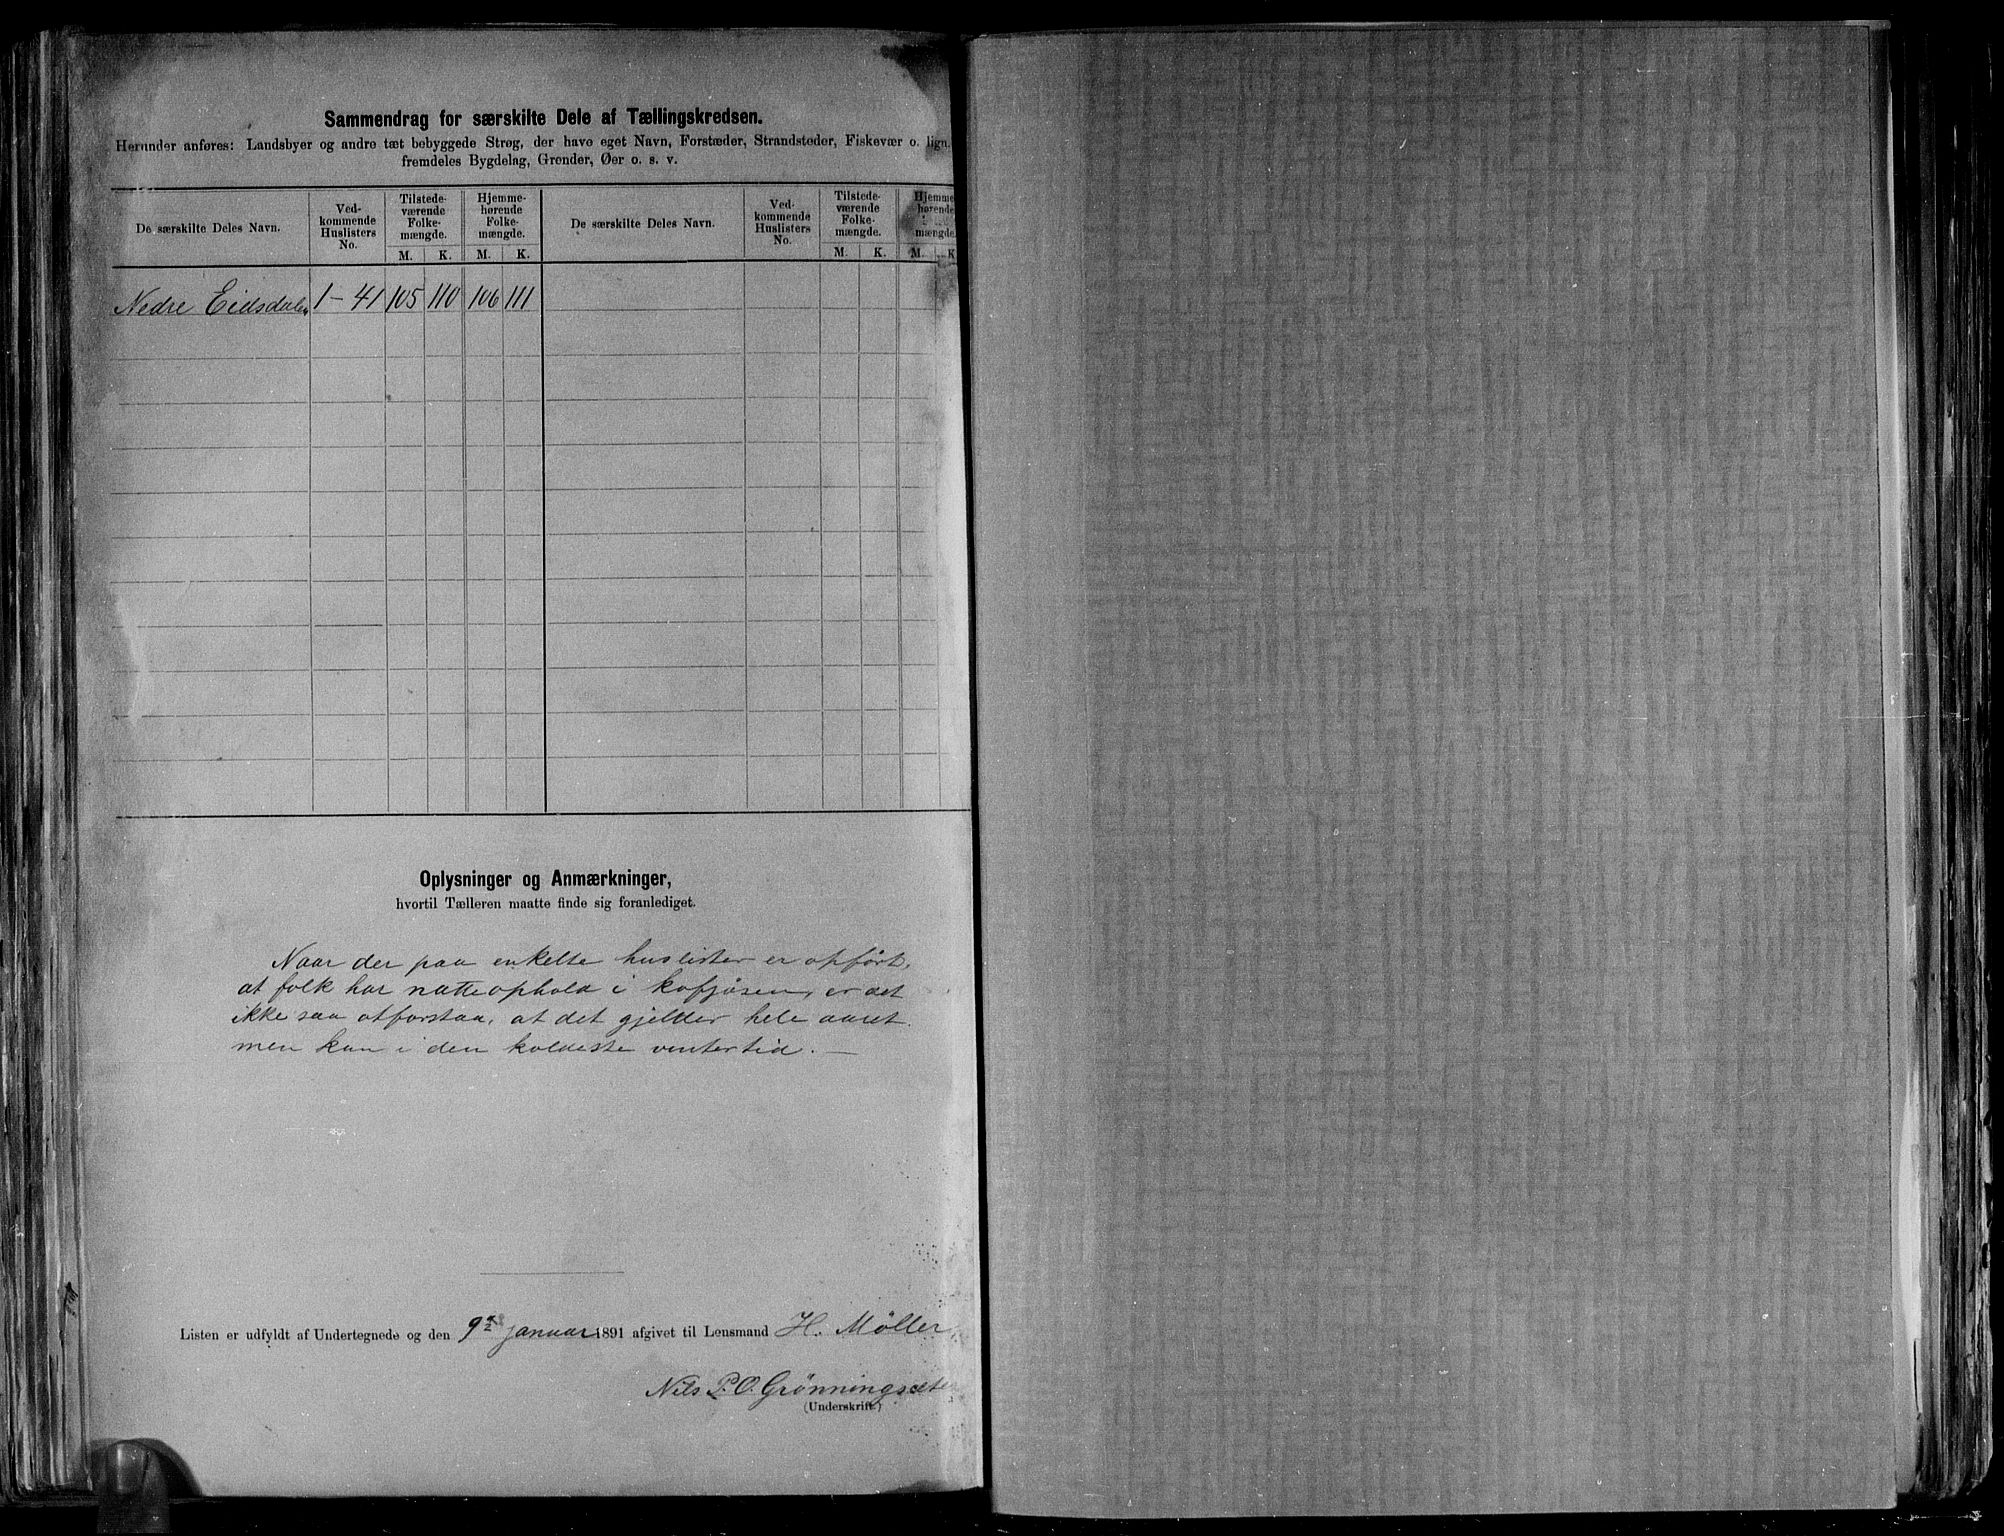 Sammendrag for særskilte Dele af Tællingskredsen.
Herunder anføres: Landsbyer og andre tæt bebyggede Strøg, der have eget Navn, Forstæder, Strandsteder, Fiskevær o. lign.
fremdeles Bygdelag, Grender, Øer o. s. v.
De særskilte Deles Navn. Ved-kommende Huslisters No. Tilstede-værende Folke-mængde. Hjemme-hørende Folke-mængde. De særskilte Deles Navn. Ved-kommende Huslisters No. Tilstede-værende Folke-mængde. Hjemme-hørende Folke-mængde.
M. K. M. K. M. K. M. K.
Nedre Eidsdalen 1-41 105 110 106 111
Oplysninger og Anmærkninger,
hvortil Tælleren maatte finde sig foranlediget.
Naar der paa enkelte huslister er opført,
at folk har natteophold i kofjøsen, er det
ikke saa atforstaa, at det gjelder hele aaret
men kun i den koldeste vintertid. —
Listen er udfyldt af Undertegnede og den 9 januar 1891 afgivet til Lensmand H. Møller
Nils P. O. Grönningsæter
(Underskrift.)